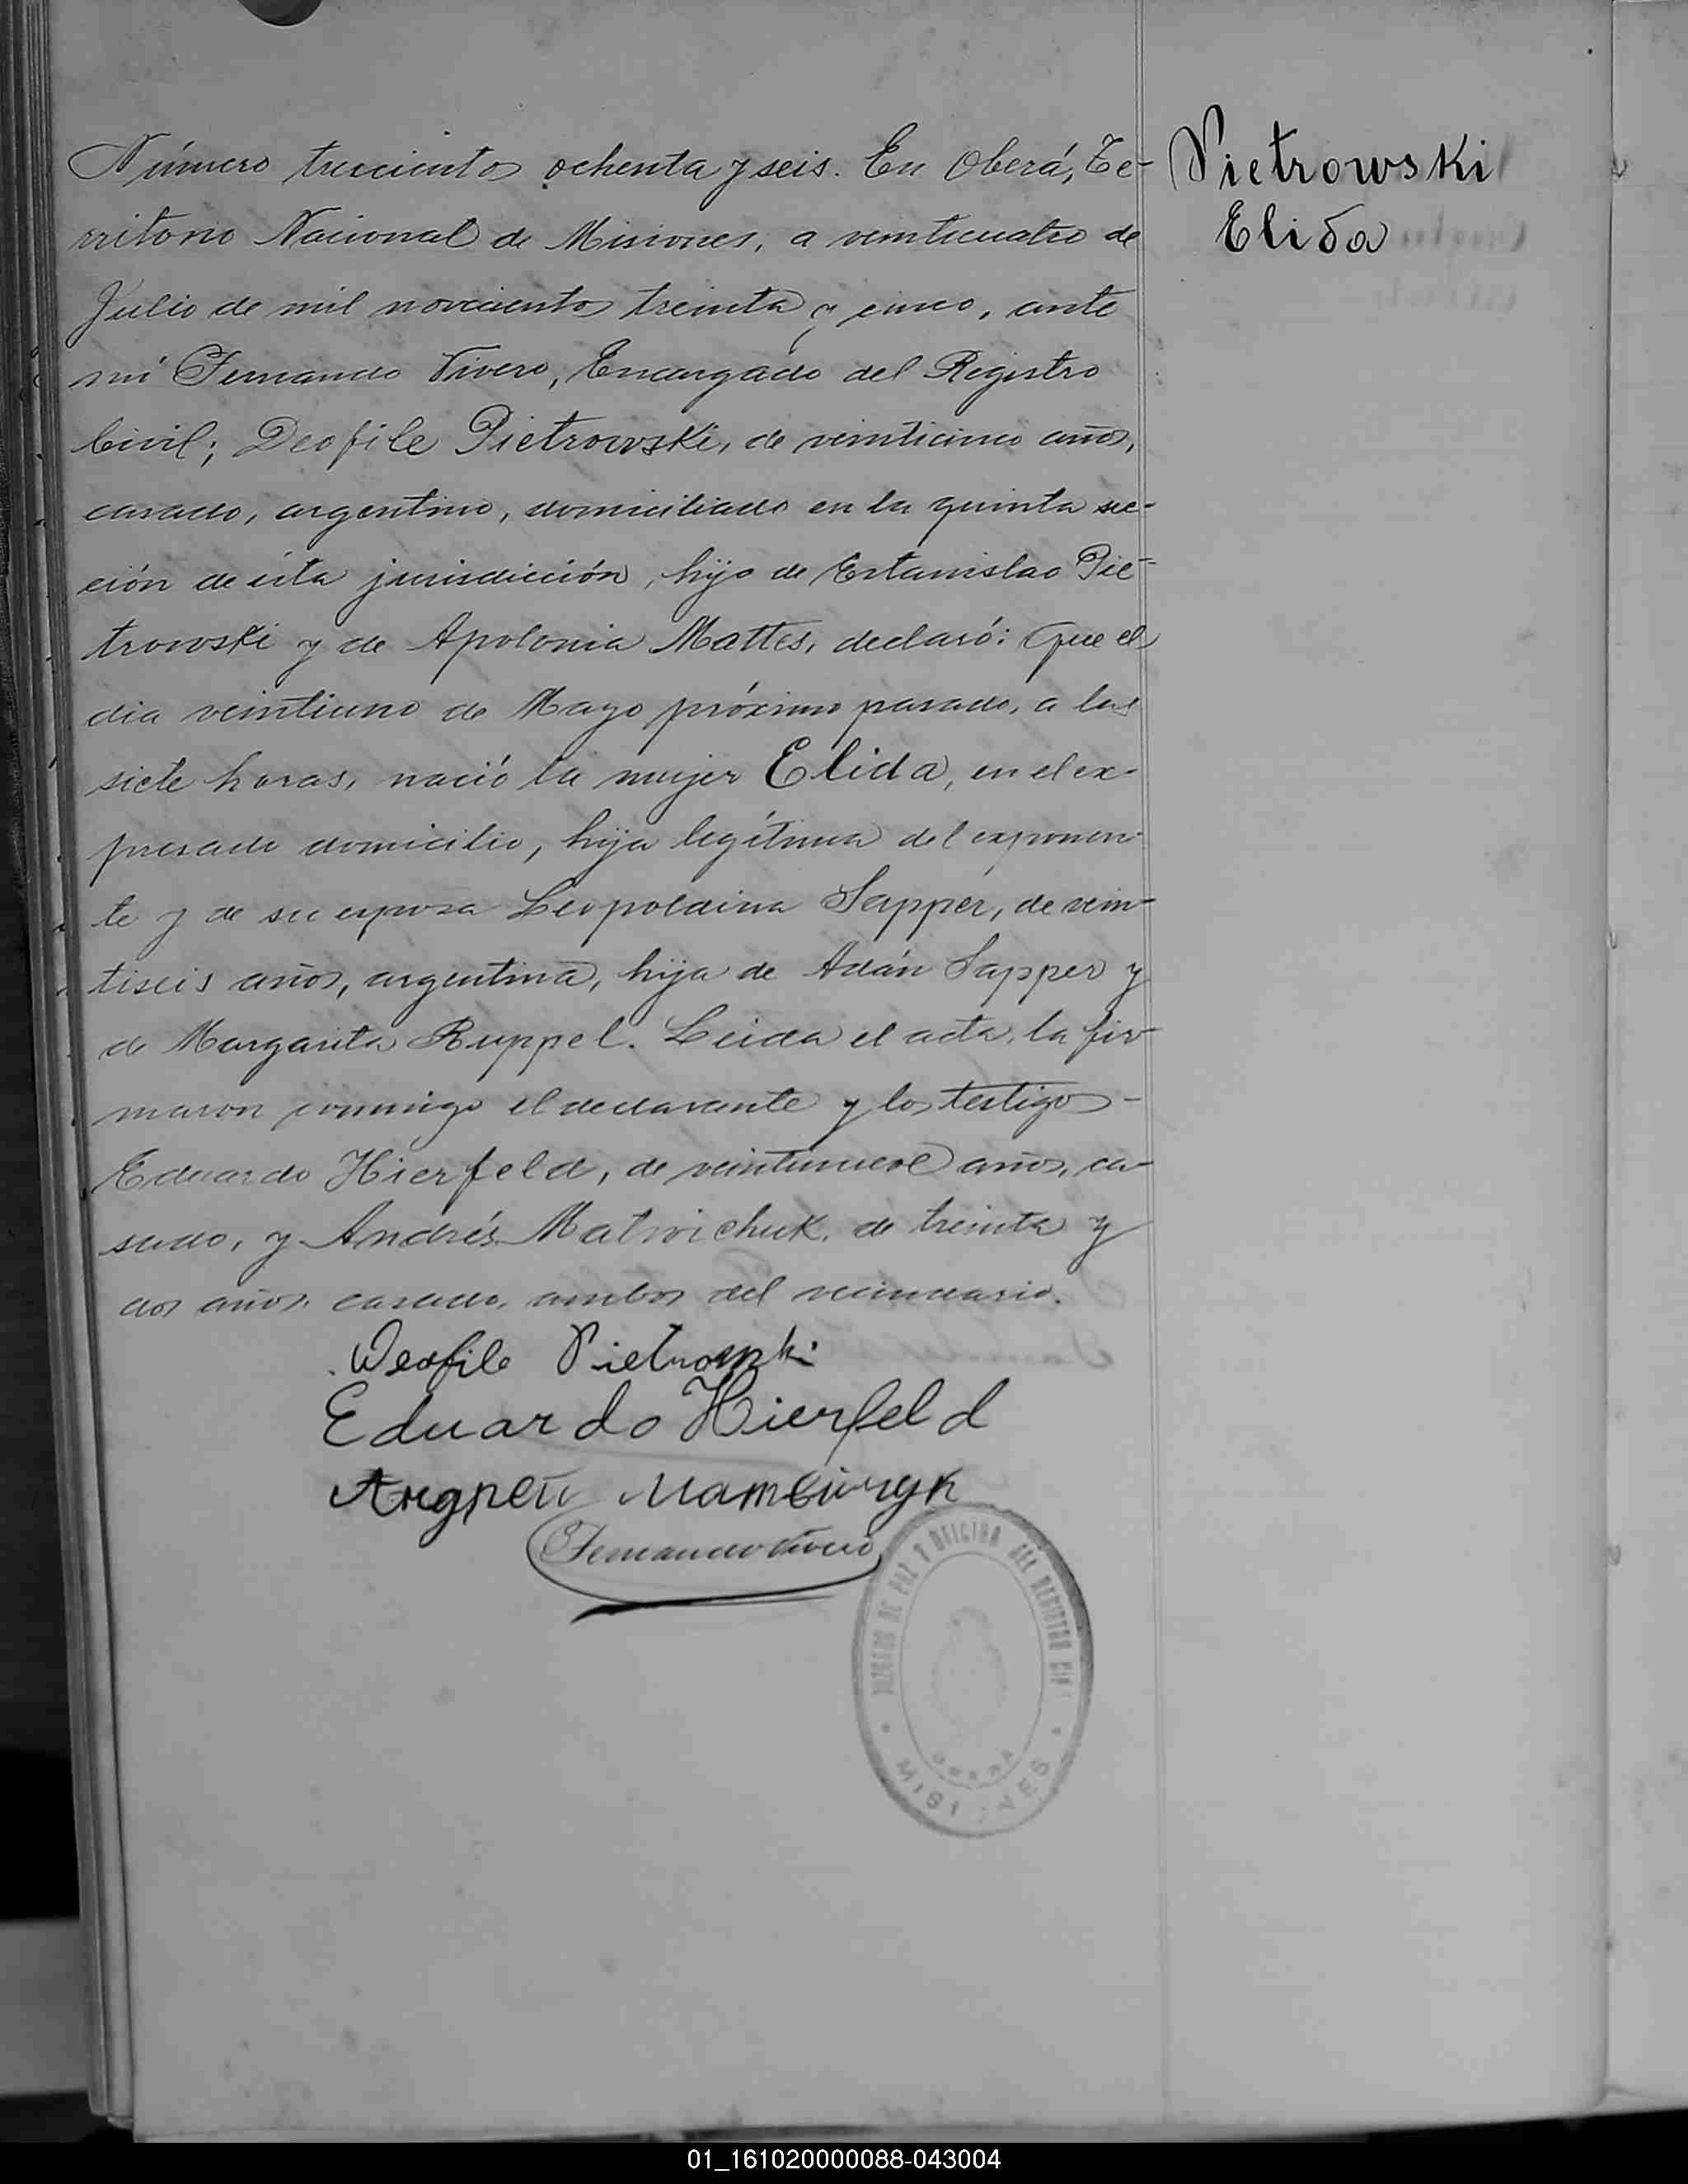 Número trescientos ochenta y seis. En Oberá, Te-
rritorio Nacional de Misiones, a veinticuatro de
Julio de mil novecientos treinta y cinco, ante
mi Fernando Vivero, Encargado del Registro
Civil; Deofile Pietrowski, de veinticinco años,
casado, argentino, domiciliado en la quinta sec-
ción de ésta jurisdicción, hijo de Estanislao Pie-
trowski y de Apolonia Mattes, declaró: Que el
dia veintiuno de Mayo próximo pasado, a las
siete horas, nació la mujer Elida, en el ex-
presado domicilio, hija legítima del exponen-
te y de su esposa Leopoldina Sapper, de vein-
tiseis años, argentina, hija de Adán Sapper y
de Margarita Ruppel. Leida el acta, la fir-
maron conmigo el declarante y los testigos -
Eduardo Hierfeld, de veintinueve años, ca-
sado, y Andrés Matwichuk, de treinta y
dos años, casado, ambos del vecindario.
Pietrowski
Elida
Deofile Pietrowski
Eduardo Hierfeld
Fernando Vivero
JUZGADO DE PAZ Y OFICINA DEL REGISTRO CIVIL
OBERÁ
MISIONES
01_161020000088-043004